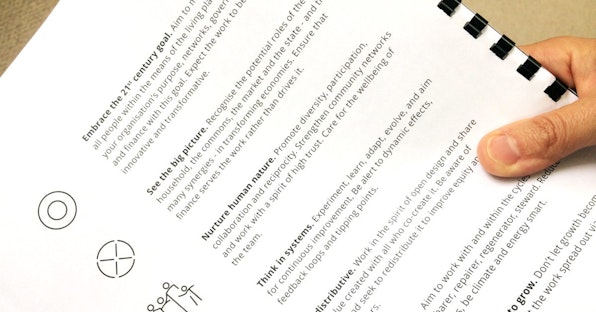 Embrace the 21st century goal. Aim to m
all people within the means of the living pla
your organisation's purpose, networks, gover
and finance with this goal. Expect the work to be
innovative and transformative.
See the big picture. Recognise the potential roles of the
household, the commons, the market and the state - and t
many synergies - in transforming economies. Ensure that
finance serves the work rather than drives it.
Nurture human nature. Promote diversity, participation,
collaboration and reciprocity. Strengthen community networks
and work with a spirit of high trust. Care for the wellbeing of
the team.
Think in systems. Experiment, learn, adapt, evolve, and aim
for continuous improvement. Be alert to dynamic effects,
feedback loops and tipping points.
distributive. Work in the spirit of open design and share
lue created with all who co-create it. Be aware of
and seek to redistribute it to improve equity
rs.
Aim to work with and within the cycles
arer, repairer, regenerator, steward. Reduce
s, be climate and energy smart.
to grow. Don't let growth become
t the work spread out vi